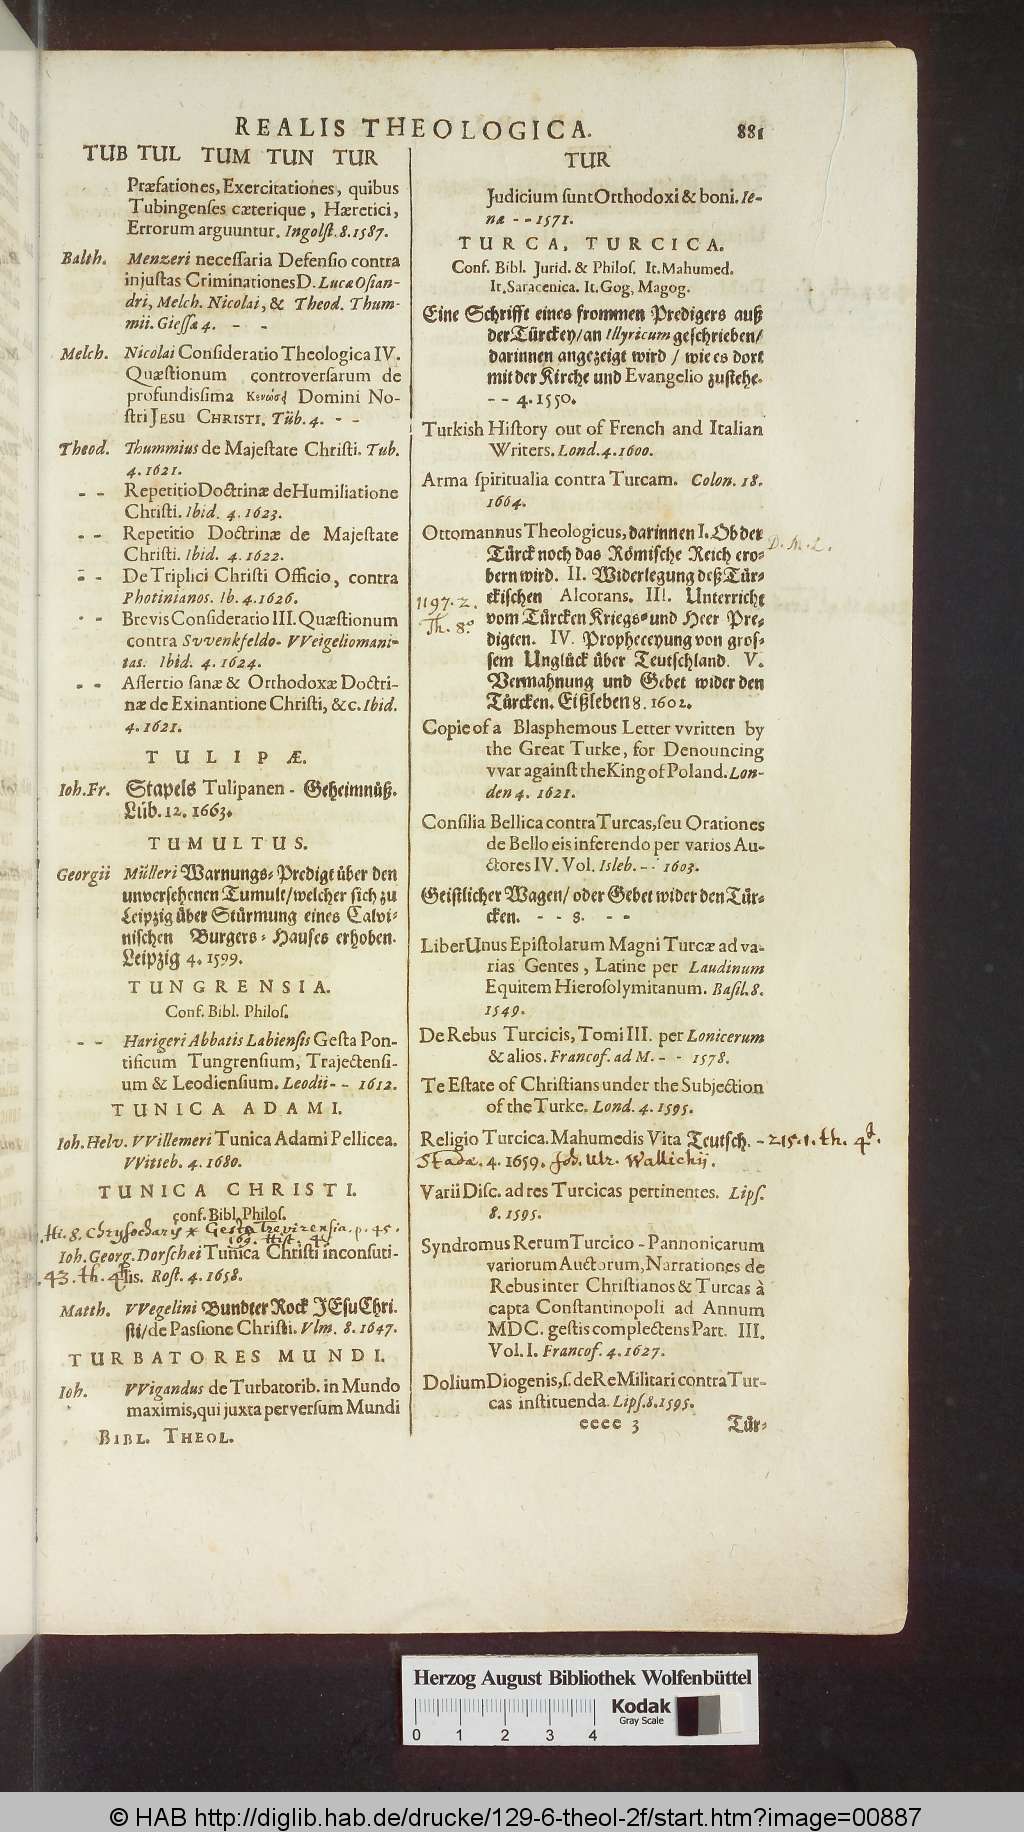 REALIS THEOLOGICA.
881
TUB TUL TUM TUN TUR
Præfationes, Exercitationes, quibus
Tubingenses cæterique, Hæretici,
Errorum arguuntur. Ingolſt. 8. 1587.
Balth. Menzeri neceſſaria Defenſio contra
injuſtas Criminationes D. Lucæ Oſian-
dri, Melch. Nicolai, & Theod. Thum-
mii. Gieſſæ 4. - -
Melch. Nicolai Conſideratio Theologica IV.
Quæſtionum controverſarum de
profundiſſima Domini No-
ſtri JESU CHRISTI. Tüb. 4. - -
Theod. Thummius de Majeſtate Chriſti. Tub.
4. 1621.
- - Repetitio Doctrinæ de Humiliatione
Chriſti. Ibid. 4. 1623.
- - Repetitio Doctrinæ de Majeſtate
Chriſti. Ibid. 4. 1622.
- - De Triplici Chriſti Officio, contra
Photinianos. Ib. 4. 1626.
- - Brevis Conſideratio III. Quæſtionum
contra Svvenkfeldo-VVeigeliomani-
tas. Ibid. 4. 1624.
- - Aſſertio ſanæ & Orthodoxæ Doctri-
næ de Exinantione Chriſti, &c. Ibid.
4. 1621.
TULIPÆ.
Ioh. Fr. Stapels Tulipanen - Geheimnüß.
Lüb. 12. 1663.
TUMULTUS.
Georgii Mülleri Warnungs-Predigt über den
unverſehenen Tumult/welcher ſich zu
Leipzig über Stürmung eines Calvi-
niſchen Burgers-Hauſes erhoben.
Leipzig 4. 1599.
TUNGRENSIA.
Conf. Bibl. Philoſ.
- - Harigeri Abbatis Labienſis Geſta Pon-
tificum Tungrenſium, Trajectenſi-
um & Leodienſium. Leodii - - 1612.
TUNICA ADAMI.
Ioh. Helv. VVillemeri Tunica Adami Pellicea.
VVitteb. 4. 1680.
TUNICA CHRISTI.
conf. Bibl. Philoſ.
Hi. 8. Chryſocharis x Geſta Trevirenſia. p. 45.
169. Hiſt. 4º
Ioh. Georg. Dorſchæi Tunica Chriſti inconſuti-
43. th. 4º lis. Roſt. 4. 1658.
Matth. VVegelini Bundter Rock JEſu Chri-
ſti/ de Paſſione Chriſti. Vlm. 8. 1647.
TURBATORES MUNDI.
Ioh. VVigandus de Turbatorib. in Mundo
maximis, qui juxta perverſum Mundi
BIBL. THEOL.
TUR
Judicium ſunt Orthodoxi & boni. Ie-
næ - - 1571.
TURCA, TURCICA.
Conf. Bibl. Jurid. & Philoſ. It. Mahumed.
It. Saracenica. It. Gog, Magog.
Eine Schrifft eines frommen Predigers auß
der Türckey/ an Illyricum geſchrieben/
darinnen angezeigt wird / wie es dort
mit der Kirche und Evangelio zuſtehe.
- - 4. 1550.
Turkish Hiſtory out of French and Italian
Writers. Lond. 4. 1600.
Arma ſpiritualia contra Turcam. Colon. 18.
1664.
Ottomannus Theologicus, darinnen I. Ob der
D. M. L.
Türck noch das Römiſche Reich ero-
bern wird. II. Widerlegung deß Tür-
1197. 2. ckiſchen Alcorans. III. Unterricht
Th. 8º vom Türcken Kriegs- und Heer Pre-
digten. IV. Propheceyung von groſ-
ſem Unglück über Teutſchland. V.
Vermahnung und Gebet wider den
Türcken. Eißleben 8. 1602.
Copie of a Blasphemous Letter vvritten by
the Great Turke, for Denouncing
vvar againſt the King of Poland. Lon-
den 4. 1621.
Conſilia Bellica contra Turcas, ſeu Orationes
de Bello eis inferendo per varios Au-
ctores IV. Vol. Isleb. - - 1603.
Geiſtlicher Wagen/ oder Gebet wider den Tür-
cken. - - 8. - -
Liber Unus Epiſtolarum Magni Turcæ ad va-
rias Gentes, Latine per Laudinum
Equitem Hieroſolymitanum. Baſil. 8.
1549.
De Rebus Turcicis, Tomi III. per Lonicerum
& alios. Francof. ad M. - - 1578.
Te Eſtate of Chriſtians under the Subjection
of the Turke. Lond. 4. 1595.
Religio Turcica. Mahumedis Vita Teutſch. - 215. 1. th. 4º.
Stadæ. 4. 1659. Joh. Ulr. Wallichij.
Varii Diſc. ad res Turcicas pertinentes. Lipſ.
8. 1595.
Syndromus Rerum Turcico - Pannonicarum
variorum Auctorum, Narrationes de
Rebus inter Chriſtianos & Turcas à
capta Conſtantinopoli ad Annum
MDC. geſtis complectens Part. III.
Vol. I. Francof. 4. 1627.
Dolium Diogenis, ſ. de Re Militari contra Tur-
cas inſtituenda. Lipſ. 8. 1595.
eeee 3
Tür-
Herzog August Bibliothek Wolfenbüttel
0 1 2 3 4
Kodak
Gray Scale
© HAB http://diglib.hab.de/drucke/129-6-theol-2f/start.htm?image=00887